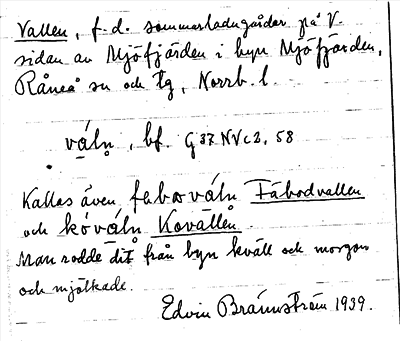 Vallen, f.d. sommarladugårdar på V.
sidan av Mjöfjärden i byn Mjöfjärden,
Råneå sn och tg, Norrb. l.
váln̥, bf. G 37 NV c 2, 58
Kallas även fäbovàln̥ Fäbodvallen
och kóvàln̥ Kovallen.
Man rodde dit från byn kväll och morgon
och mjölkade.
Edvin Brännström 1939.